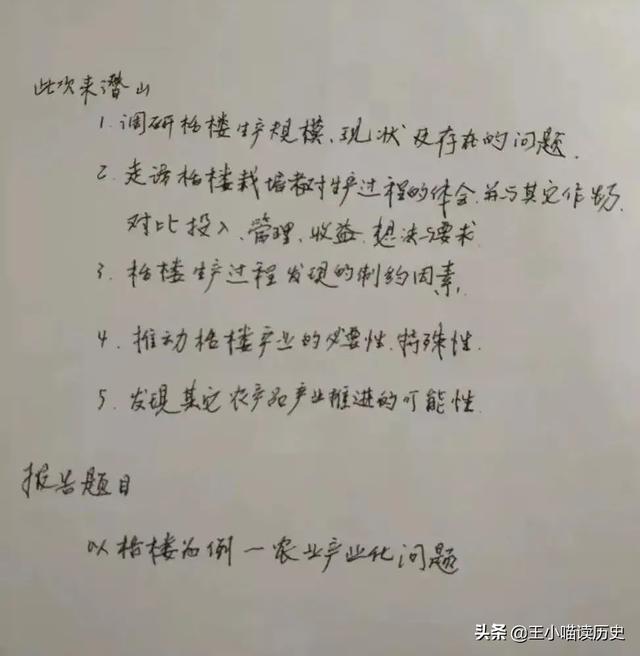 此次来潜山
1. 调研栝楼生产规模、现状及存在的问题.
2. 走访栝楼栽培者对生产过程的体会.并与其它作物
对比投入、管理、收益.想法与要求
3. 栝楼生产过程发现的制约因素,
4. 推动栝楼产业的必要性.特殊性.
5. 发现其它农产品产业推进的可能性.
报告题目
以栝楼为例一农业产业化问题
头条 @王小喵读历史